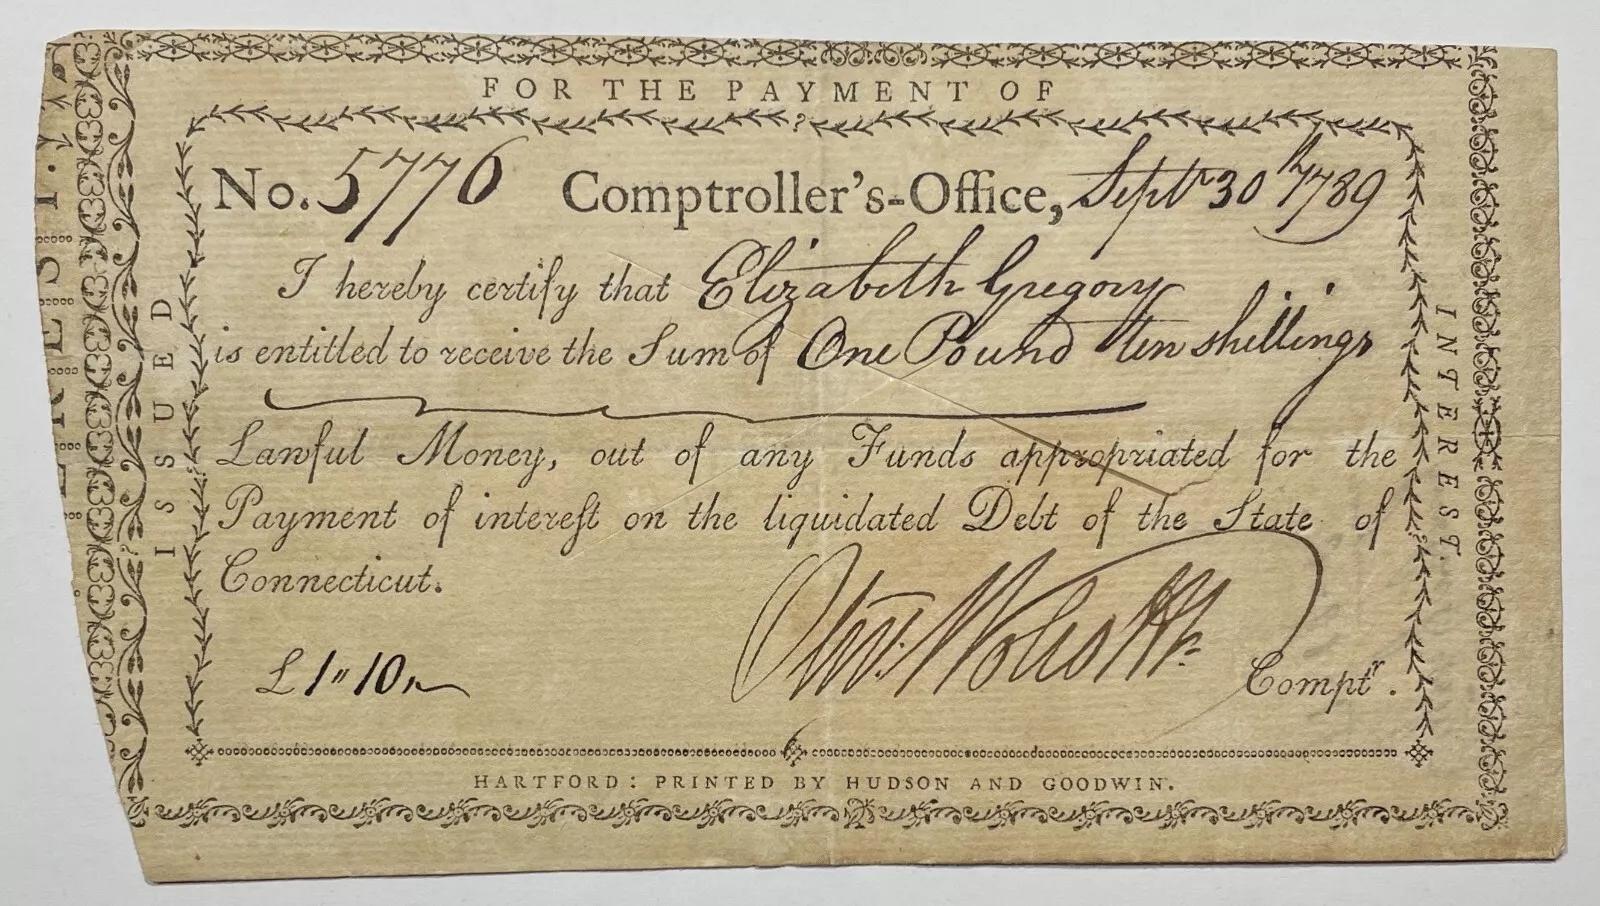 FOR THE PAYMENT OF
No. 5776 Comptroller's-Office, Septr 30th 1789
I hereby certify that Elizabeth Gregory
is entitled to receive the Sum of One Pound ten shillings
Lawful Money, out of any Funds appropriated for the
Payment of intereſt on the liquidated Debt of the State of
Connecticut.
£1"10,,
Olivr. Wolcott Jr
Comptr.
HARTFORD: PRINTED BY HUDSON AND GOODWIN.
ISSUED
INTEREST.